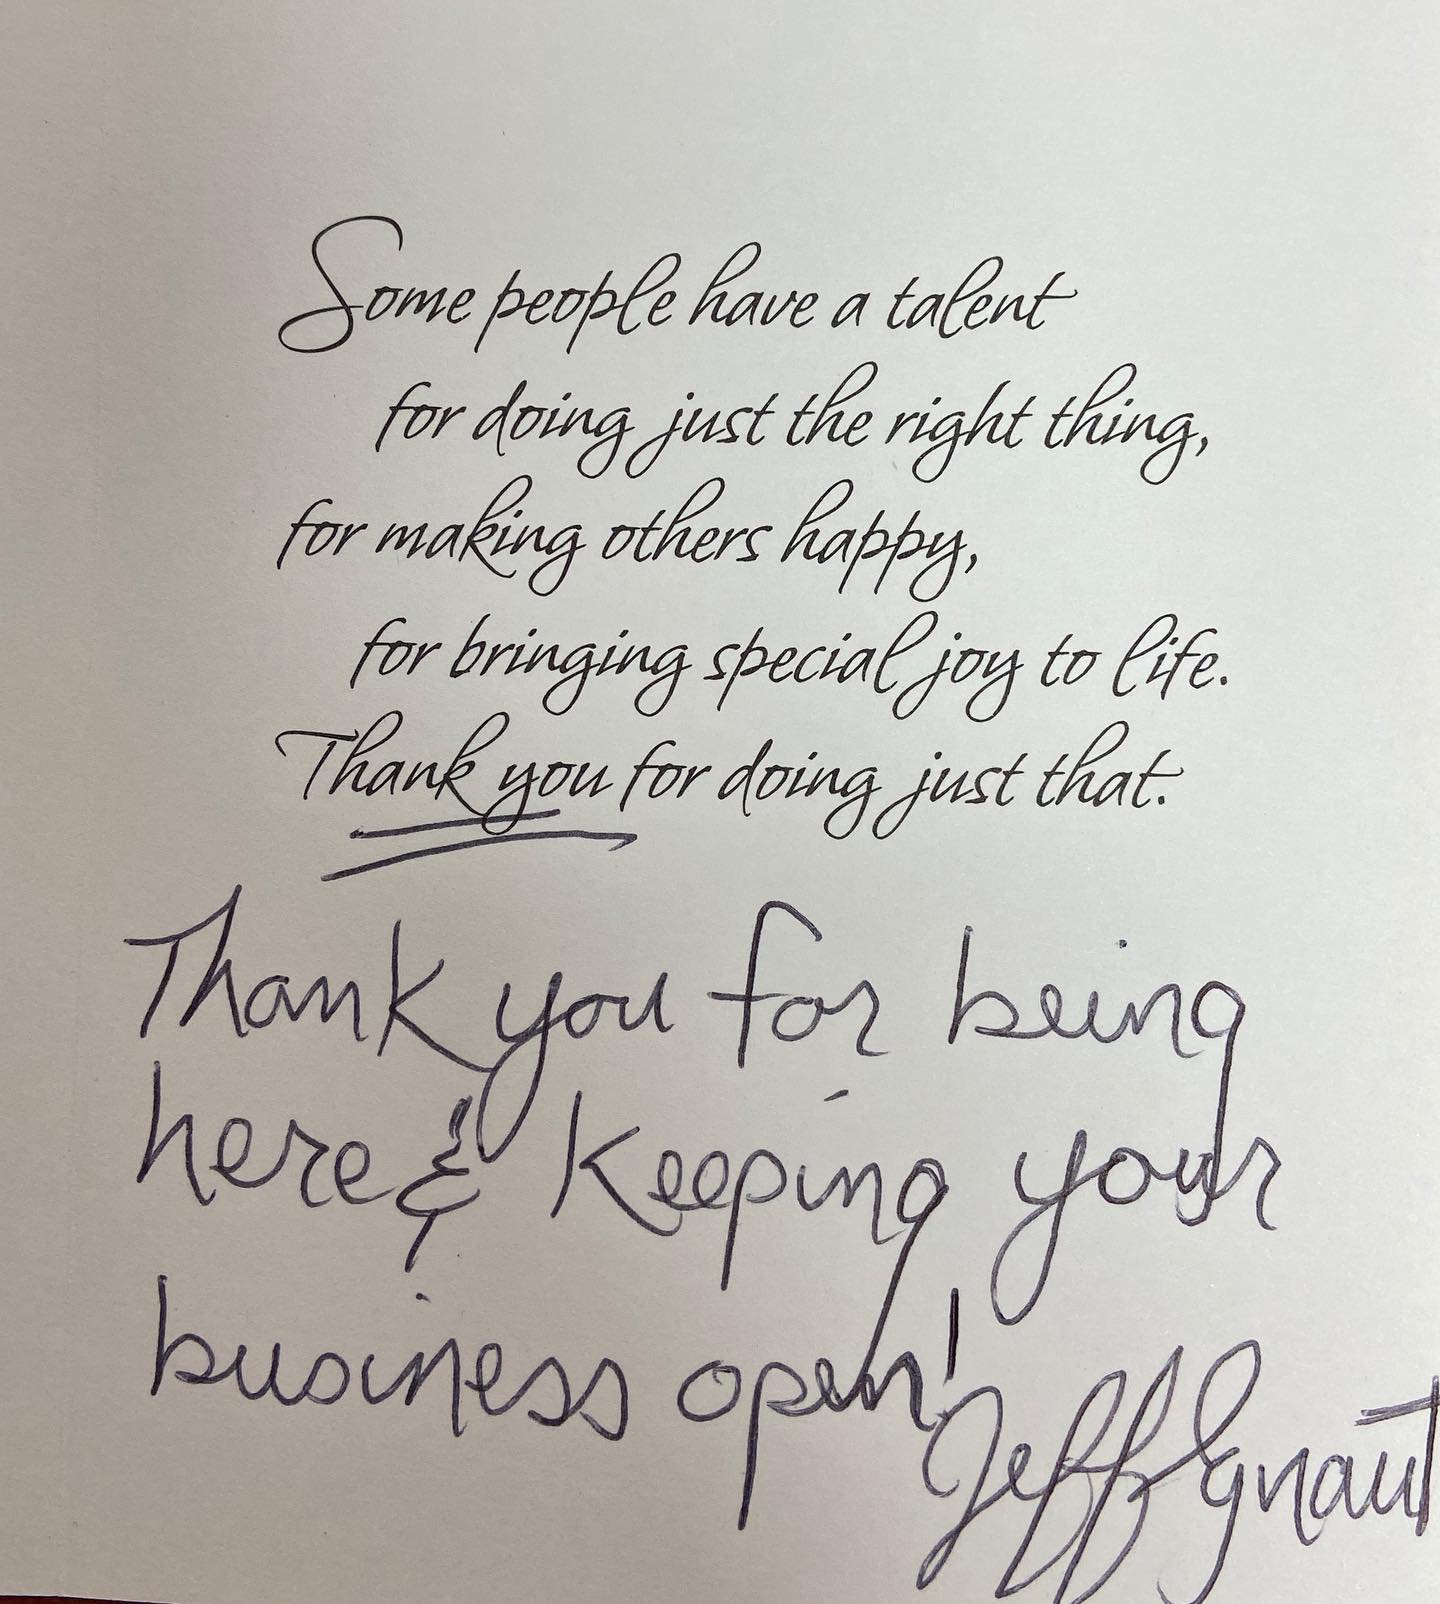 Some people have a talent
for doing just the right thing,
for making others happy,
for bringing special joy to life.
Thank you for doing just that.
Thank you for being
here & Keeping your
business open!
Jeff